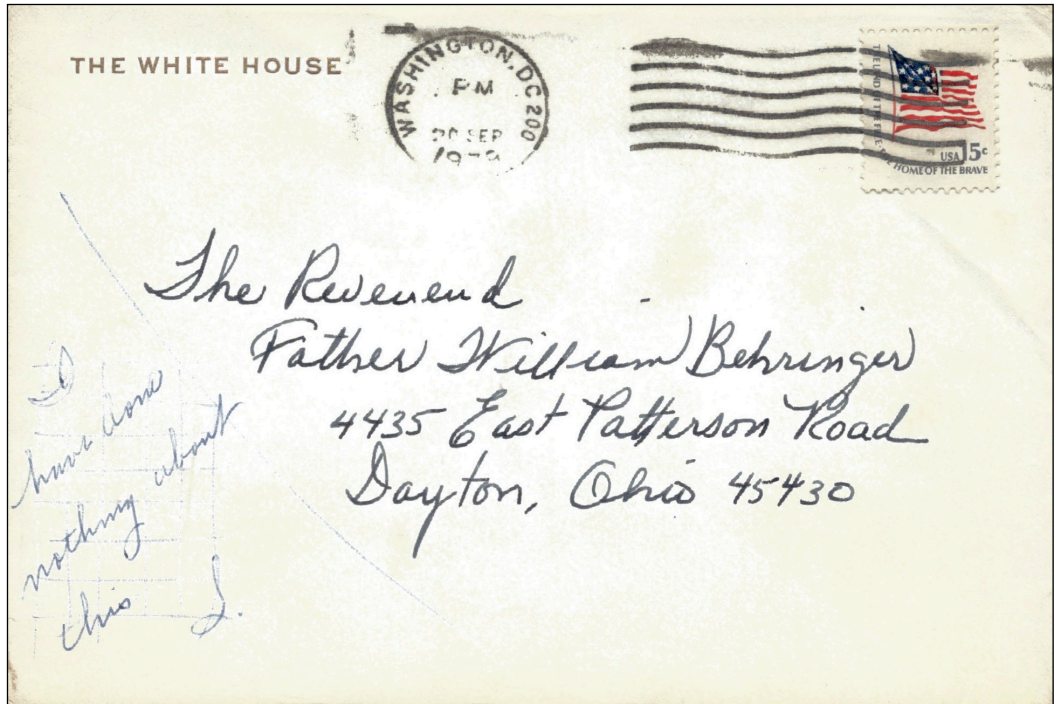 THE WHITE HOUSE
WASHINGTON, DC 200
PM
20 SEP
1979
THE LAND OF THE FREE, THE HOME OF THE BRAVE
USA 15c
The Reverend
Father William Behringer
4435 East Patterson Road
Dayton, Ohio 45430
I
have done
nothing about
this S.